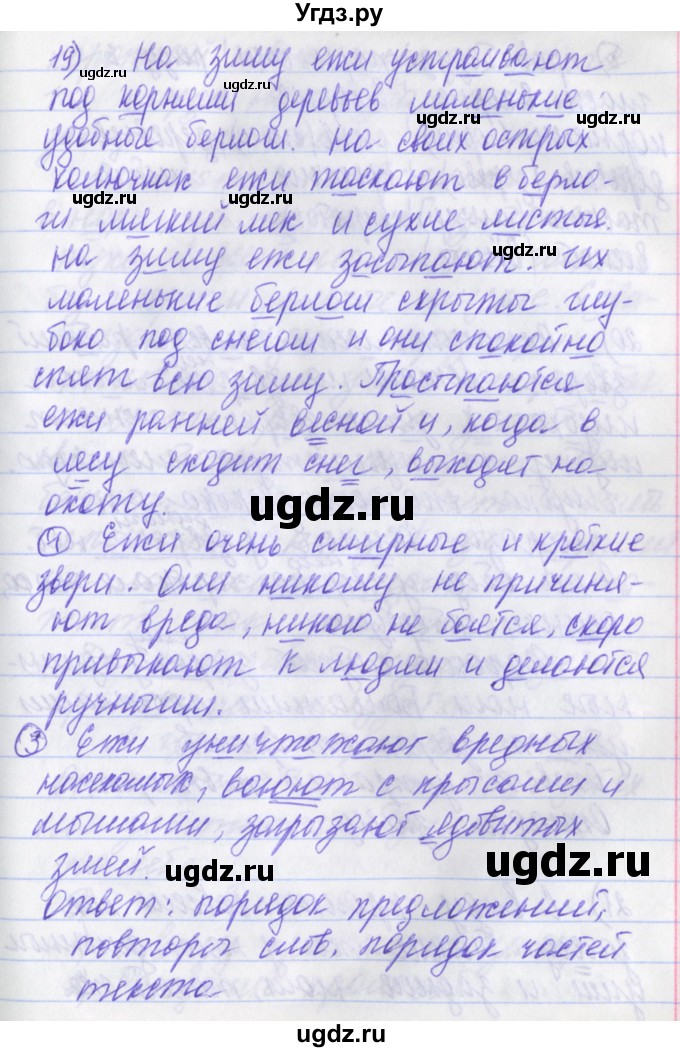 Угдз.ру
19) На зиму ежи устраивают
под корнями деревьев маленькие
удобные берлоги. На своих острых
колючках ежи таскают в берло-
ги мягкий мох и сухие листья.
На зиму ежи засыпают. Их
маленькие берлоги скрыты глу-
боко под снегом и они спокойно
спят всю зиму. Простыпаются
ежи ранней весной и, когда в
лесу сходит снег, выходят на
охоту.
④ Ежи очень смирные и кроткие
звери. Они никому не причиня-
ют вреда, никого не боятся, скоро
привыкают к людям и делаются
ручными.
③ Ежи уничтожают вредных
насекомых, воюют с крысами и
мышами, загрызают ядовитых
змей.
Ответ: порядок предложений,
повторы слов, порядок частей
текста
ugdz.ru
ugdz.ru
ugdz.ru
ugdz.ru
ugdz.ru
ugdz.ru
ugdz.ru
ugdz.ru
ugdz.ru
ugdz.ru
ugdz.ru
ugdz.ru
ugdz.ru